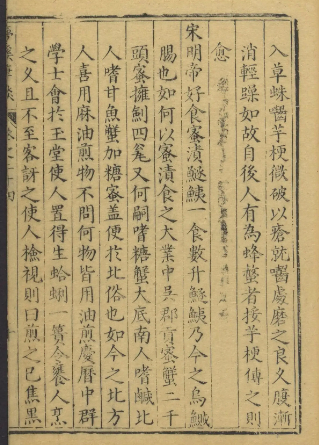 入草蛛嚙芋梗微破以瘡就嚙處磨之良久腹漸
消輕躁如故自後人有為蜂螫者挼芋梗傅之則
愈
宋明帝好食蜜漬鱁鮧一食數升鱁鮧乃今之烏鰂
腸也如何以蜜漬食之大業中吳郡貢蜜蟹二千
頭蜜擁釰四瓮又何嗣嗜糖蟹大底南人嗜鹹北
人嗜甘魚蟹加糖蜜蓋便於北俗也如今之北方
人喜用麻油煎物不問何物皆用油煎慶曆中群
學士會於玉堂使人置得生蛤蜊一簣令饔人烹
之久且不至客訝之使人檢視則曰煎之已焦黑